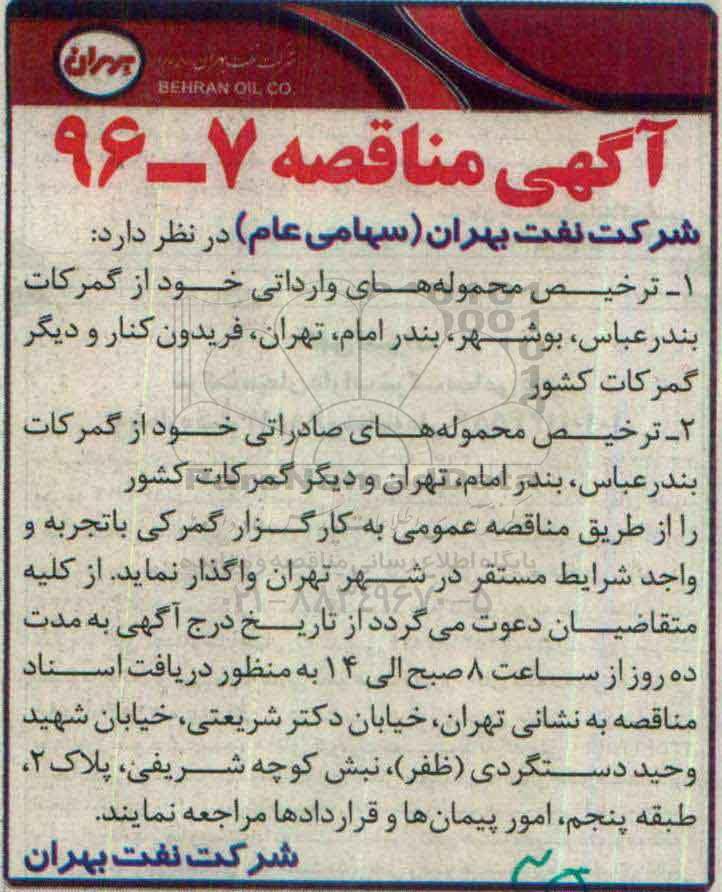 بهران
شرکت نفت بهران
BEHRAN OIL CO.
آگهی مناقصه ۷-۹۶
شرکت نفت بهران (سهامی عام) در نظر دارد:
۱- ترخیص محموله‌های وارداتی خود از گمرکات
بندرعباس، بوشهر، بندر امام، تهران، فریدون کنار و دیگر
گمرکات کشور
۲- ترخیص محموله‌های صادراتی خود از گمرکات
بندرعباس، بندر امام، تهران و دیگر گمرکات کشور
را از طریق مناقصه عمومی به کارگزار گمرکی باتجربه و
واجد شرایط مستقر در شهر تهران واگذار نماید. از کلیه
متقاضیان دعوت می‌گردد از تاریخ درج آگهی به مدت
ده روز از ساعت ۸ صبح الی ۱۴ به منظور دریافت اسناد
مناقصه به نشانی تهران، خیابان دکتر شریعتی، خیابان شهید
وحید دستگردی (ظفر)، نبش کوچه شریفی، پلاک ۲،
طبقه پنجم، امور پیمان‌ها و قراردادها مراجعه نمایند.
شرکت نفت بهران
ParsNamadData
پایگاه اطلاع رسانی مناقصه و مزایده
۰۲۱-۸۸۳۴۹۶۷۰-۵